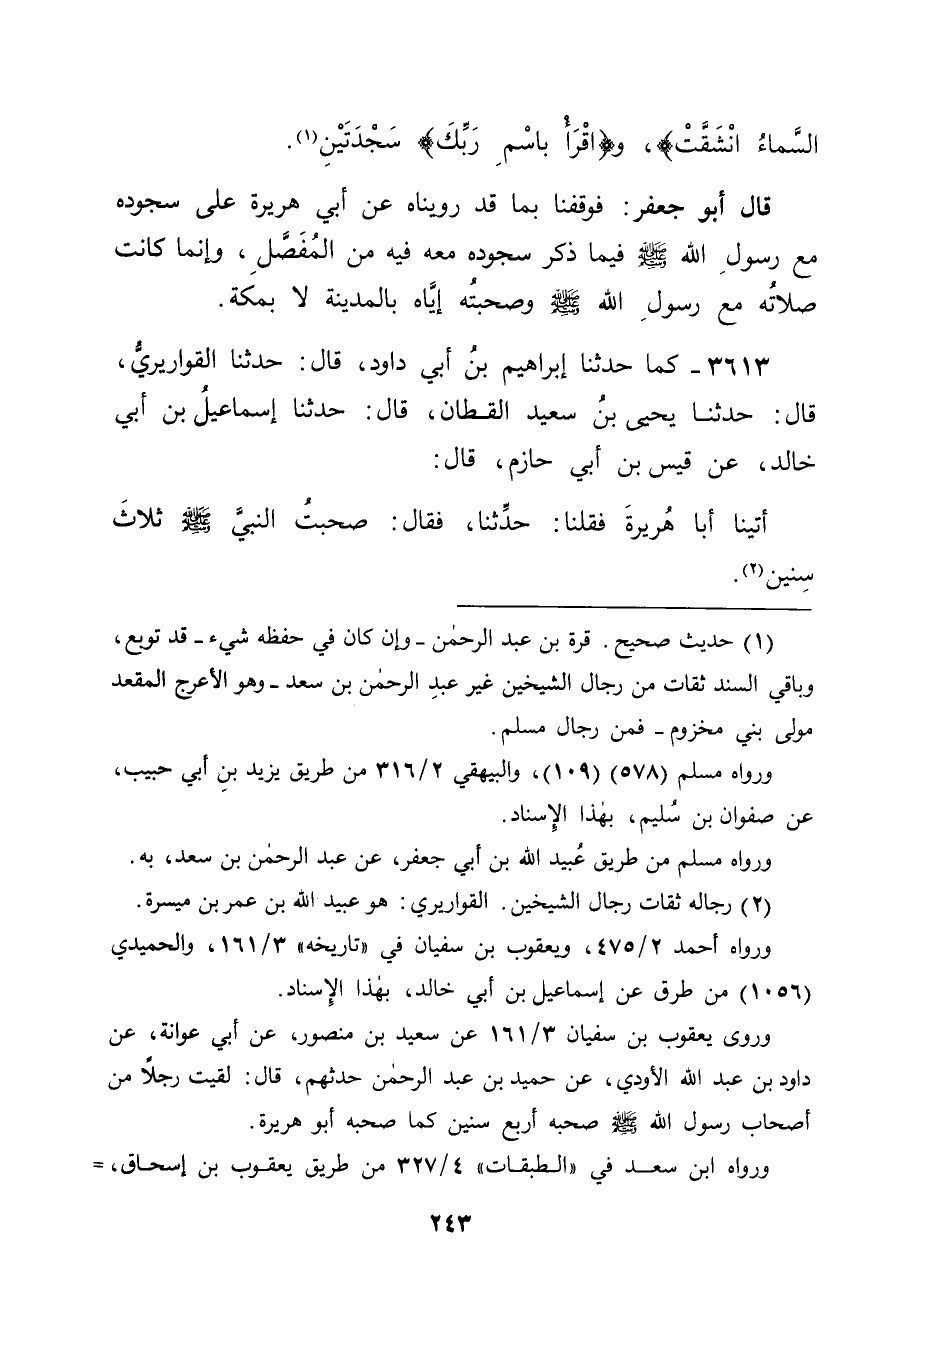 السَّماءُ انْشَقَّتْ﴾، و﴿اقْرَأْ باسْمِ رَبِّكَ﴾ سَجْدَتَيْنِ(١).
قال أبو جعفر: فوقفنا بما قد رويناه عن أبي هريرة على سجوده
مع رسولِ الله ﷺ فيما ذكر سجوده معه فيه من المُفَصَّلِ، وإنما كانت
صلاتُه مع رسولِ الله ﷺ وصحبتُه إيَّاه بالمدينة لا بمكة.
٣٦١٣ ـ كما حدثنا إبراهيم بنُ أبي داود، قال: حدثنا القواريريُّ،
قال: حدثنا يحيى بنُ سعيد القطان، قال: حدثنا إسماعيلُ بن أبي
خالد، عن قيس بن أبي حازم، قال:
أتينا أبا هُريرةَ فقلنا: حدِّثنا، فقال: صحبتُ النبيَّ ﷺ ثلاثَ
سِنين(٢).
(١) حديث صحيح. قرة بن عبد الرحمٰن ـ وإن كان في حفظه شيء ـ قد توبع،
وباقي السند ثقات من رجال الشيخين غير عبدِ الرحمٰن بن سعد ـ وهو الأعرج المقعد
مولى بني مخزوم ـ فمن رجال مسلم.
ورواه مسلم (٥٧٨) (١٠٩)، والبيهقي ٣١٦/٢ من طريق يزيد بنِ أبي حبيب،
عن صفوان بن سُليم، بهٰذا الإِسناد.
ورواه مسلم من طريق عُبيد الله بن أبي جعفر، عن عبد الرحمٰن بن سعد، به.
(٢) رجاله ثقات رجال الشيخين. القواريري: هو عبيد الله بن عمر بن ميسرة.
ورواه أحمد ٤٧٥/٢، ويعقوب بن سفيان في «تاريخه» ١٦١/٣، والحميدي
(١٠٥٦) من طرق عن إسماعيل بن أبي خالد، بهٰذا الإِسناد.
وروى يعقوب بن سفيان ١٦١/٣ عن سعيد بن منصور، عن أبي عوانة، عن
داود بن عبد الله الأودي، عن حميد بن عبد الرحمٰن حدثهم، قال: لقيت رجلاً من
أصحاب رسول الله ﷺ صحبه أربع سنين كما صحبه أبو هريرة.
ورواه ابن سعد في «الطبقات» ٣٢٧/٤ من طريق يعقوب بن إسحاق، =
٢٤٣